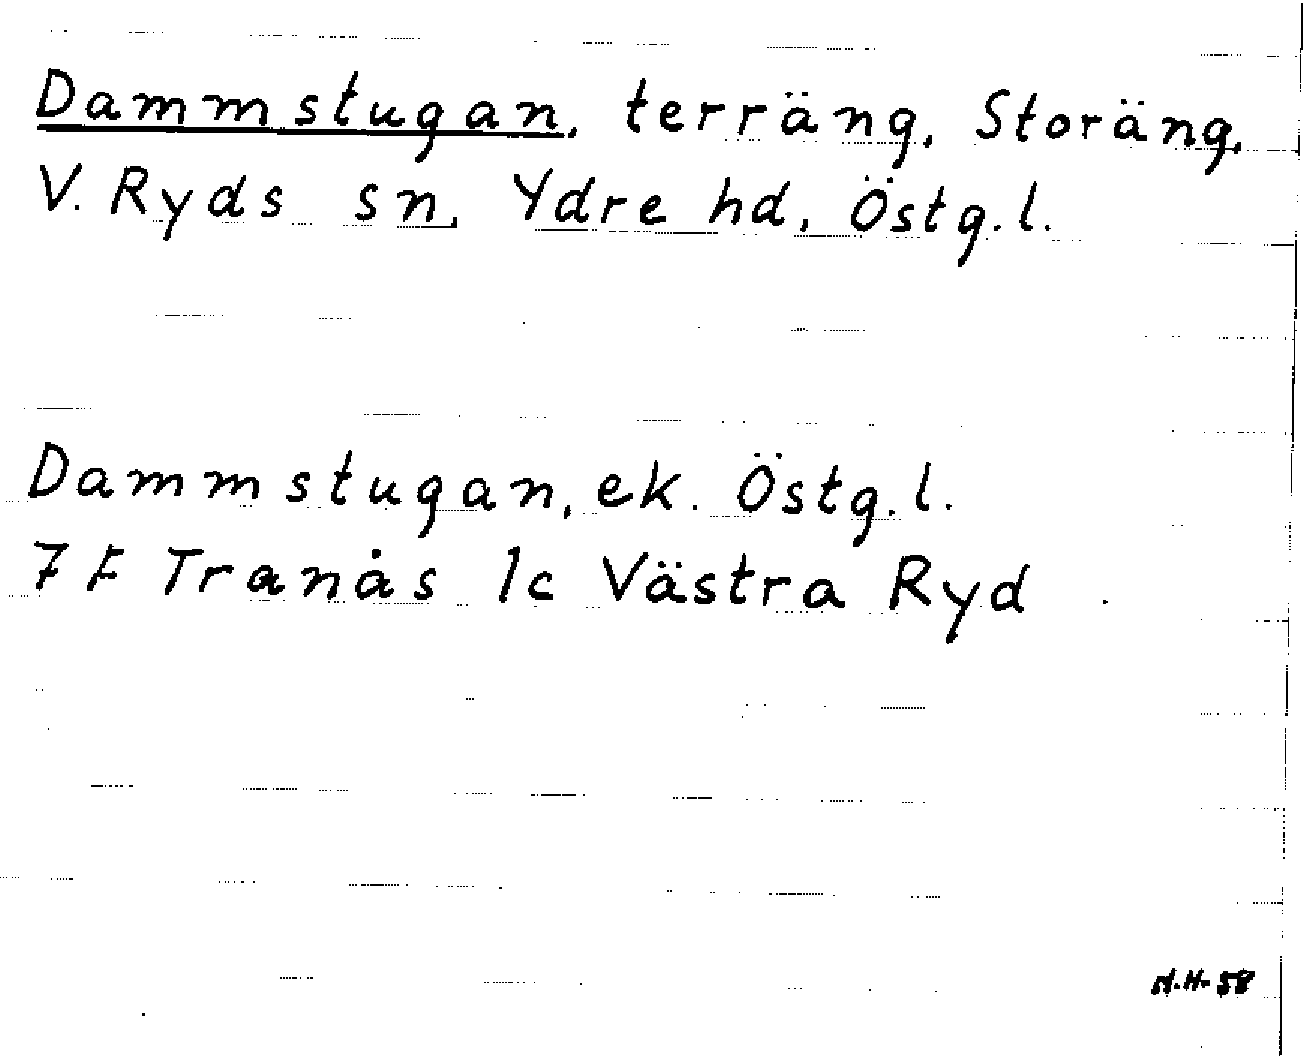 Dammstugan, terräng, Storäng,
V. Ryds sn, Ydre hd, Östg.l.
Dammstugan, ek. Östg.l.
7 F Tranås 1c Västra Ryd
N.H-58